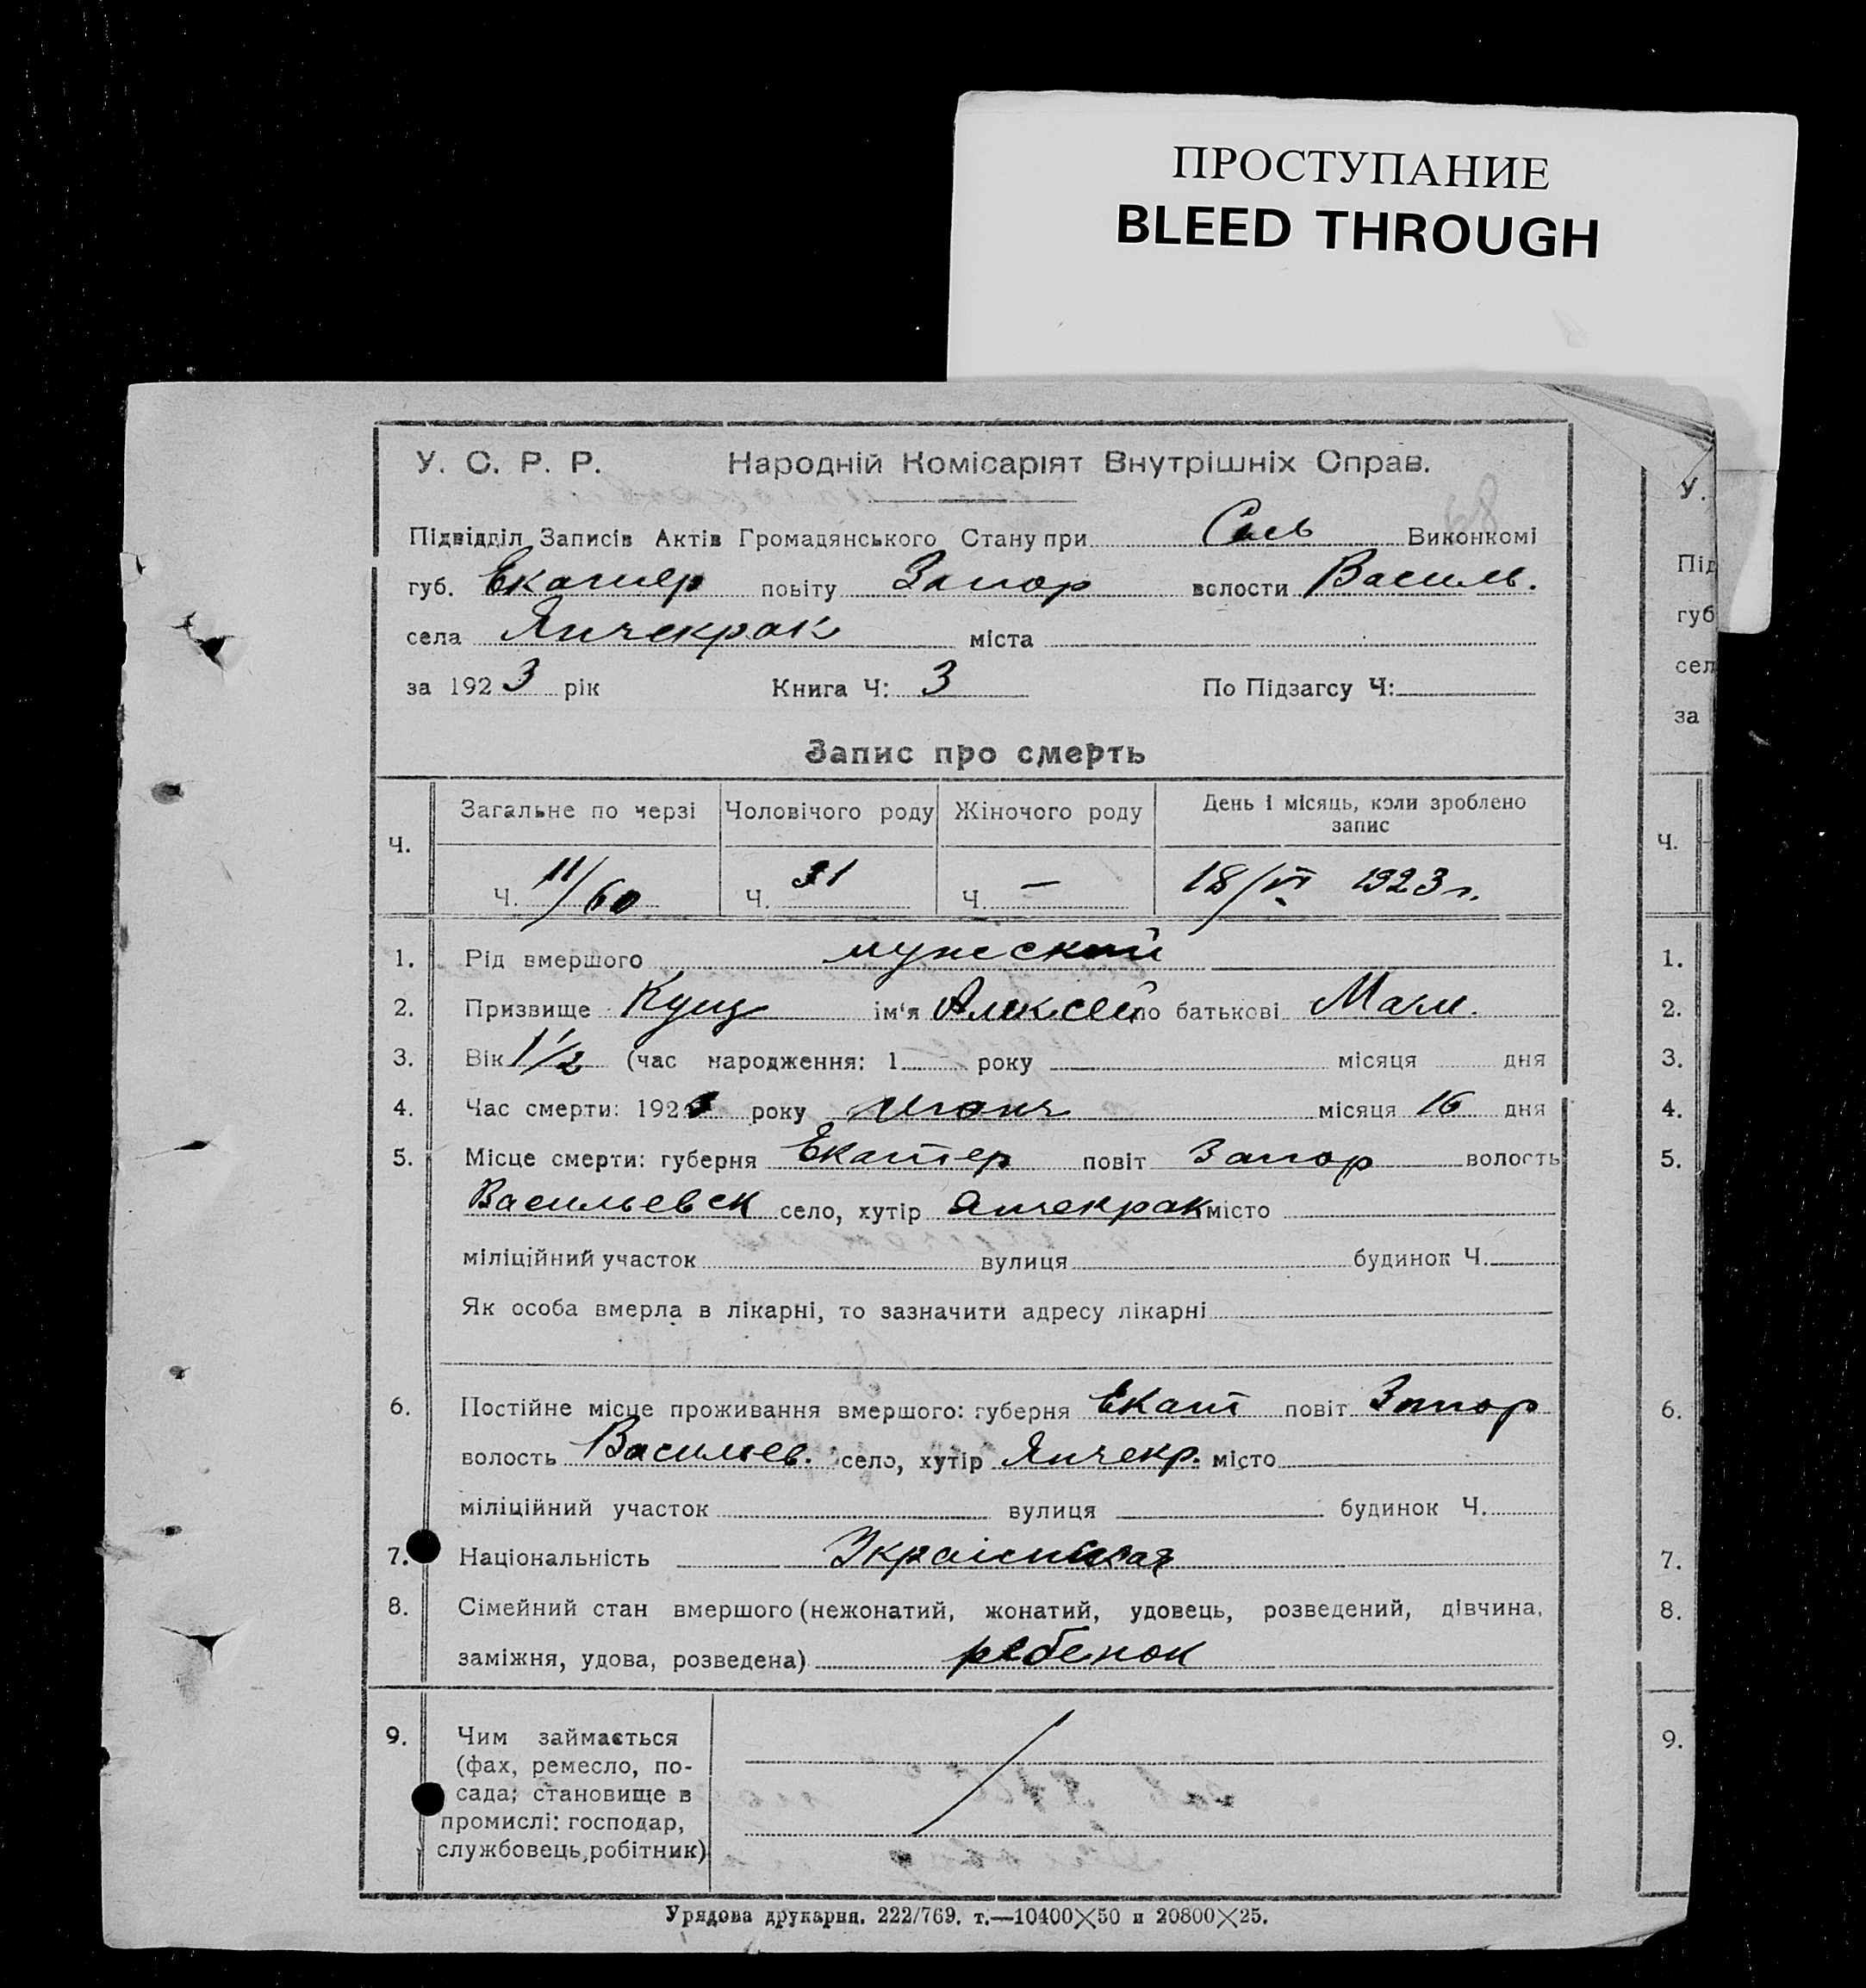 ПРОСТУПАНИЕ
BLEED THROUGH
У. С. Р. Р. Народній Комісаріят Внутрішніх Справ.
68
Підвідділ Записів Актів Громадянського Стану при Сель Виконкомі
губ. Екатер повіту Запор волости Василь.
села Янчекрак міста
за 1923 рік Книга Ч: 3 По Підзагсу Ч:
Запис про смерть
Ч. Загальне по черзі Чоловічого роду Жіночого роду День і місяць, коли зроблено запис
Ч. 11/60 Ч. 31 Ч. — 18/VI 1923 г.
1. Рід вмершого мужской
2. Призвище Кущ ім'я Алексей по батькові
3. Вік 1 1/2 (час народження: 1 року місяця дня
4. Час смерти: 192 року Июнь місяця 16 дня
5. Місце смерти: губерня Екатер повіт Запор волость
Васильевск село, хутір Янчекрак місто
міліційний участок вулиця будинок Ч.
Як особа вмерла в лікарні, то зазначити адресу лікарні
6. Постійне місце проживання вмершого: губерня Екат повіт Запор
волость Васильев. село, хутір Янчекр. місто
міліційний участок вулиця будинок Ч.
7. Національність Украинская
8. Сімейний стан вмершого (нежонатий, жонатий, удовець, розведений, дівчина,
заміжня, удова, розведена) ребенок
9. Чим займається
(фах, ремесло, по-
сада; становище в
промислі: господар,
службовець, робітник)
Урядова друкарня. 222/769. т.—10400×50 и 20800×25.
У.
Під
губ
сел
за
Ч.
1.
2.
3.
4.
5.
6.
7.
8.
9.